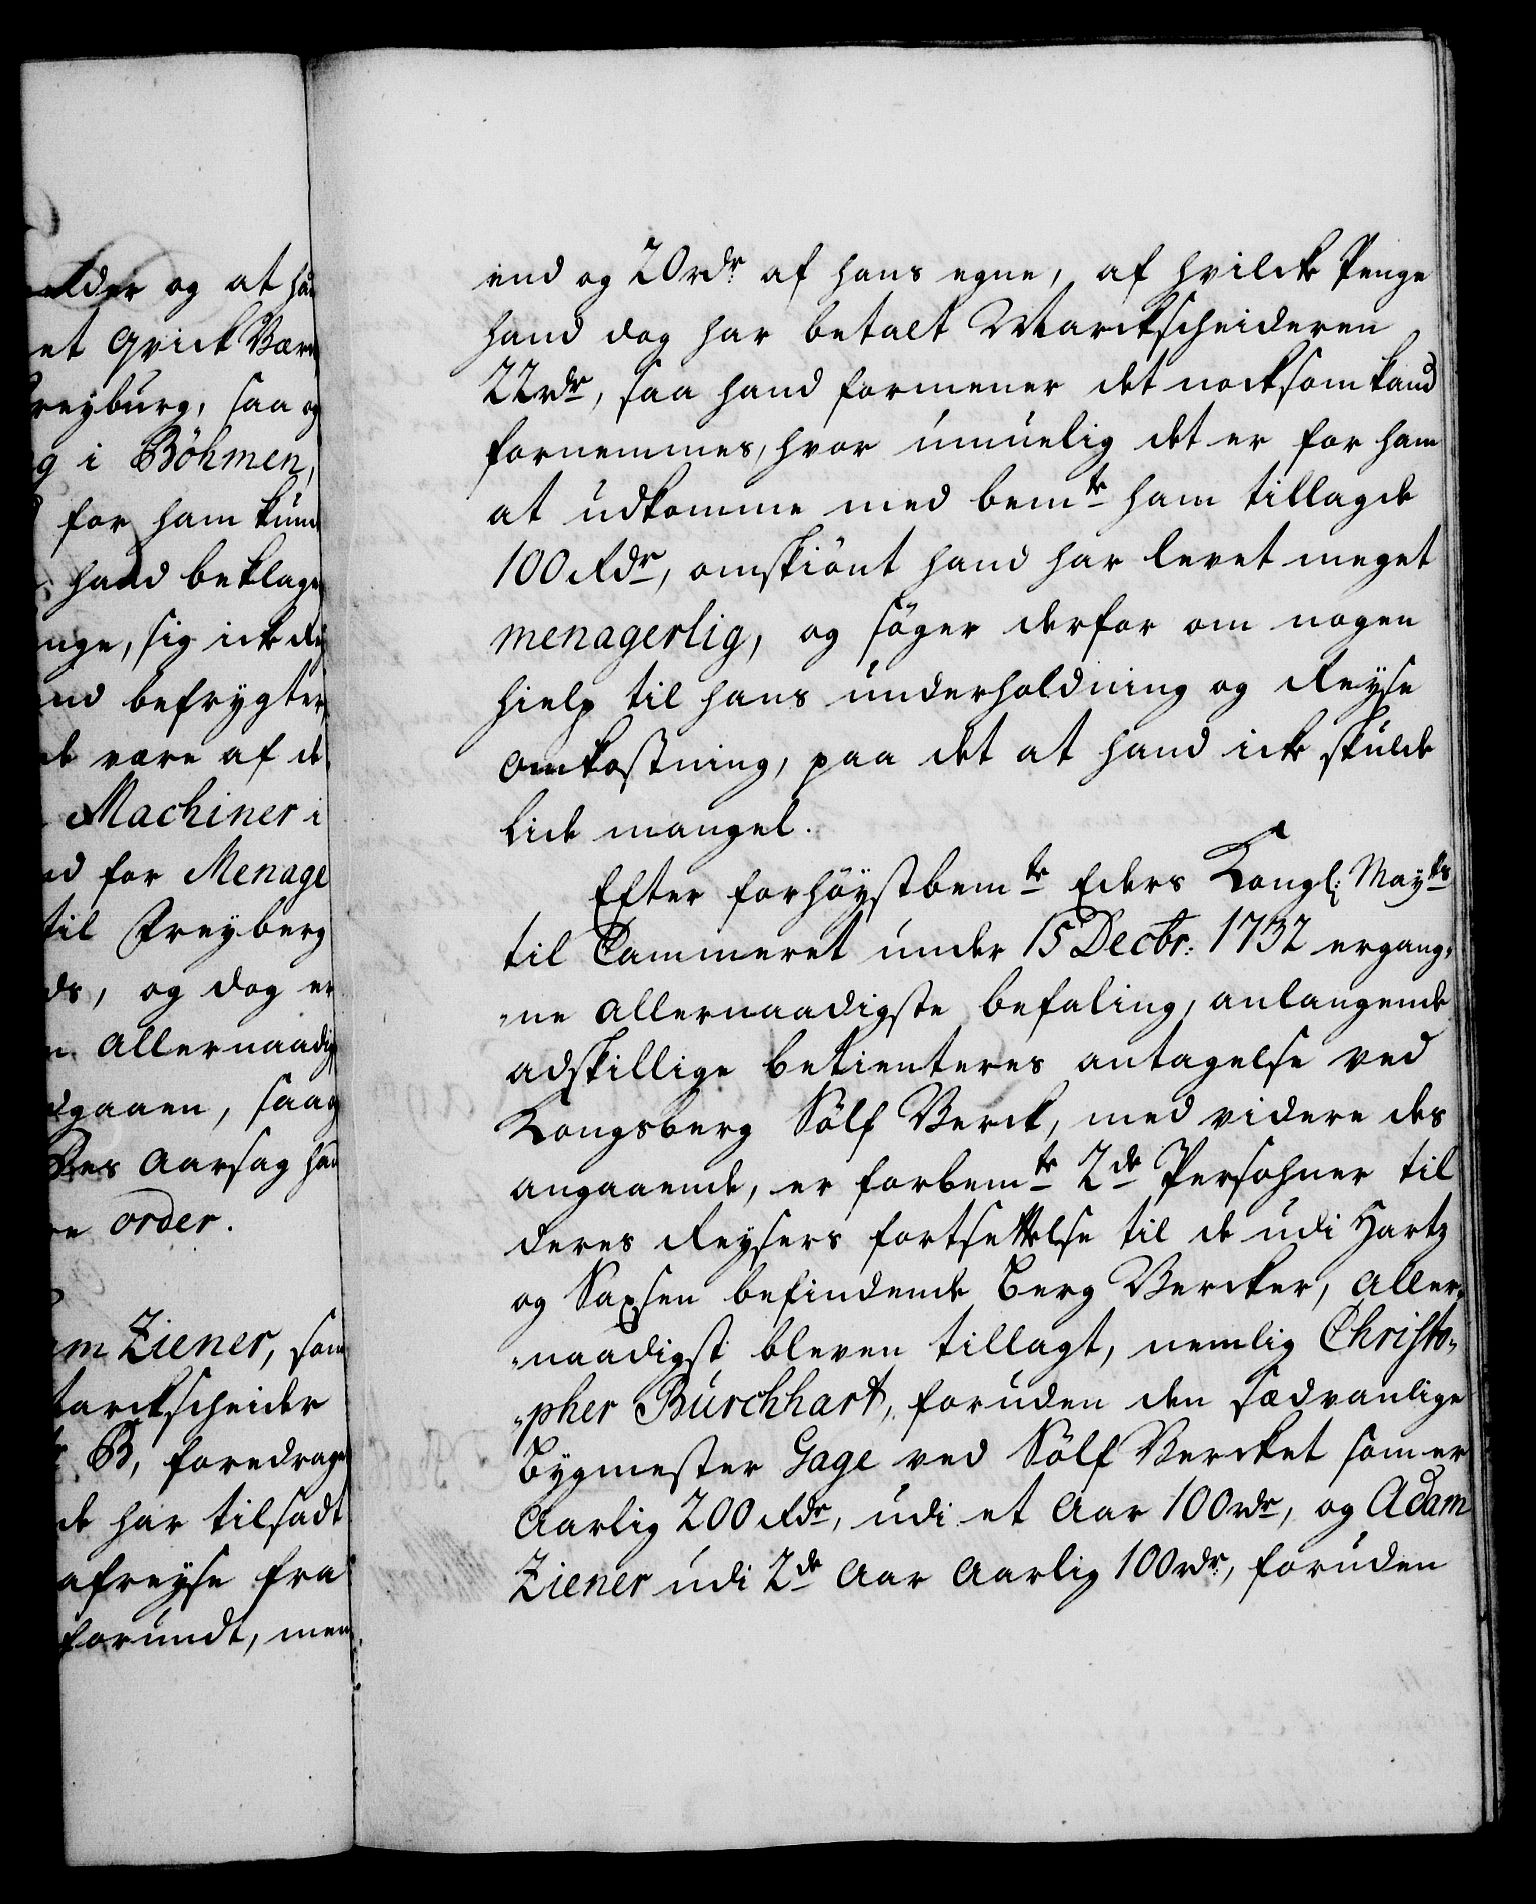 elder og at han
et Qvick Værk
Freyburg, saa og
g i Böhmen,
for ham kund
hand beklager
nge, sig icke
nd befrygter
de være af de
Machiner i
d for Menage
til Freyberg
ds, og dog er
allernaadig
dgaaen, saa
Aarsag han
order.
m Ziener, som
Marckscheider
B, foredrager
de har tilsadt
afreyse fra
forundt, men
end og 20 rdr. af hans egne, af hvilcke Penge
hand dog har betalt Marckscheideren
22 rdr, saa hand formener det nocksom kand
fornemmes, hvor umuelig det er for ham
at udkomme med bemte ham tillagde
100 Rdr, omskiönt hand har levet meget
menagerlig, og söger derfor om nogen
hielp til hans underholdning og Reyse
omkostning, paa det at hand icke skulde
lide mangel.
Efter forhöystbemte Eders Kongl: Mayts
til Cammeret under 15 Decbr: 1732 ergang,
„ne allernaadigste befaling, anlangende
adskillige betienteres antagelse ved
Kongsberg Sölf Verck, med videre des
angaaende, er forbemte 2de Persohner til
deres Reysers fortsettelse til de udi Hartz
og Saxsen befindende Berg Vercker, aller„
„naadigst bleven tillagt, nemlig Christo„
„pher Burchhart, foruden den sædvanlige
Bygmester Gage ved Sölf Vercket som er
Aarlig 200 Rdr, udi et Aar 100 rdr, og Adam
Ziener udi 2de Aar Aarlig 100 rdr, foruden